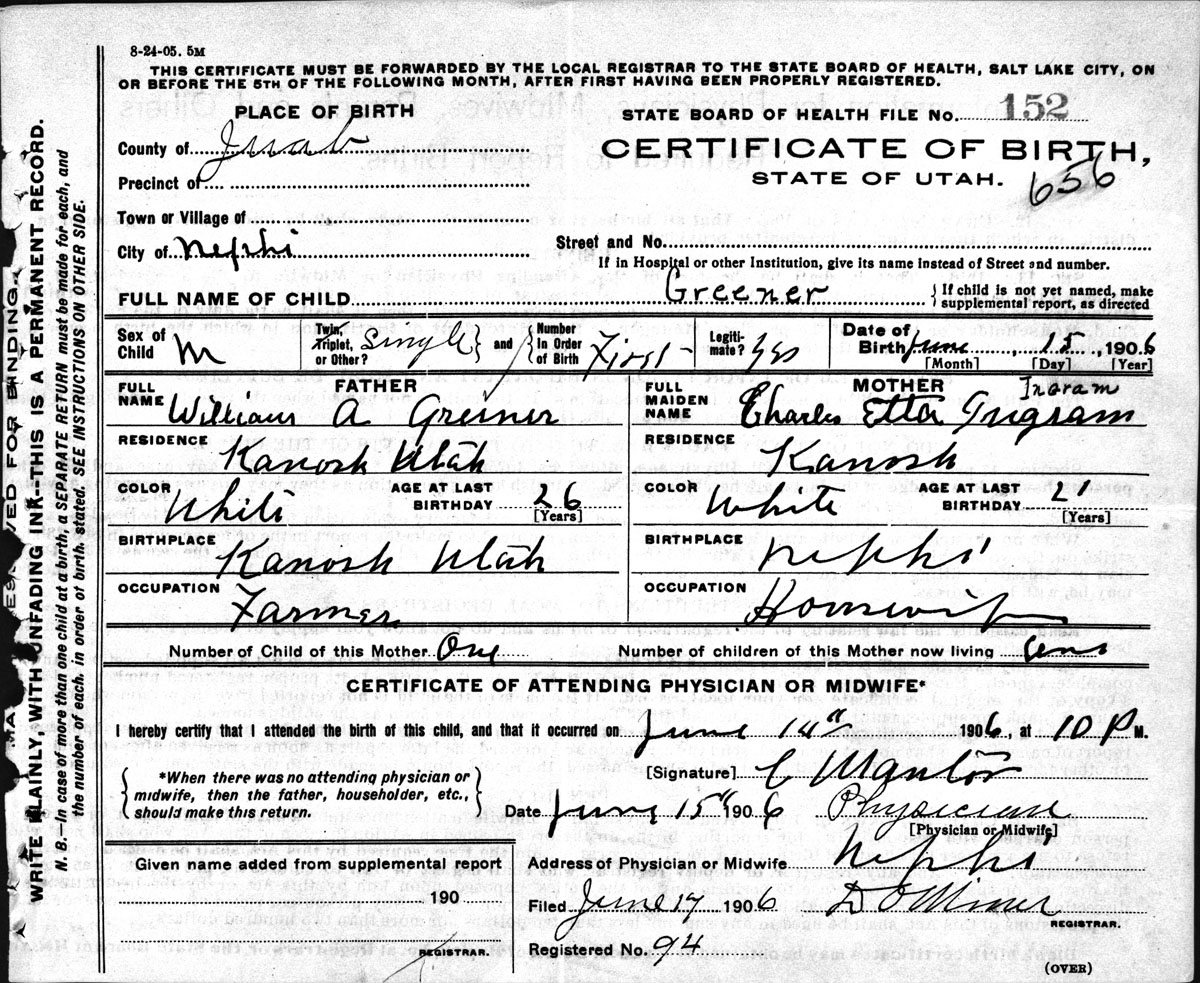 8-24-05. 5M
THIS CERTIFICATE MUST BE FORWARDED BY THE LOCAL REGISTRAR TO THE STATE BOARD OF HEALTH, SALT LAKE CITY, ON
OR BEFORE THE 5TH OF THE FOLLOWING MONTH, AFTER FIRST HAVING BEEN PROPERLY REGISTERED.
PLACE OF BIRTH
STATE BOARD OF HEALTH FILE No. 152
County of Juab
CERTIFICATE OF BIRTH,
Precinct of
STATE OF UTAH.
656
Town or Village of
City of Nephi
Street and No.
If in Hospital or other Institution, give its name instead of Street and number.
FULL NAME OF CHILD Greener
If child is not yet named, make
supplemental report, as directed
Sex of Child M
Twin, Triplet, or Other? Single and Number In Order of Birth First
Legitimate? Yes
Date of Birth June 15, 1906
[Month] [Day] [Year]
FATHER
FULL NAME William A Greiner
MOTHER
Ingram
FULL MAIDEN NAME Charles Etta Ingram
RESIDENCE Kanosh Utah
RESIDENCE Kanosh
COLOR White AGE AT LAST BIRTHDAY 26
[Years]
COLOR White AGE AT LAST BIRTHDAY 21
[Years]
BIRTHPLACE Kanosh Utah
BIRTHPLACE Nephi
OCCUPATION Farmer
OCCUPATION Housewife
Number of Child of this Mother One
Number of children of this Mother now living
CERTIFICATE OF ATTENDING PHYSICIAN OR MIDWIFE*
I hereby certify that I attended the birth of this child, and that it occurred on June 14th 1906, at 10 P M.
*When there was no attending physician or
midwife, then the father, householder, etc.,
should make this return.
[Signature]
Date June 15th 1906 Physician
[Physician or Midwife]
Given name added from supplemental report
190
REGISTRAR.
Address of Physician or Midwife Nephi
Filed June 17 1906
REGISTRAR.
Registered No. 94
(OVER)
WRITE PLAINLY, WITH UNFADING INK—THIS IS A PERMANENT RECORD.
N. B.—In case of more than one child at a birth, a SEPARATE RETURN must be made for each, and
the number of each. in order of birth. stated. SEE INSTRUCTIONS ON OTHER SIDE.
VED FOR BINDING